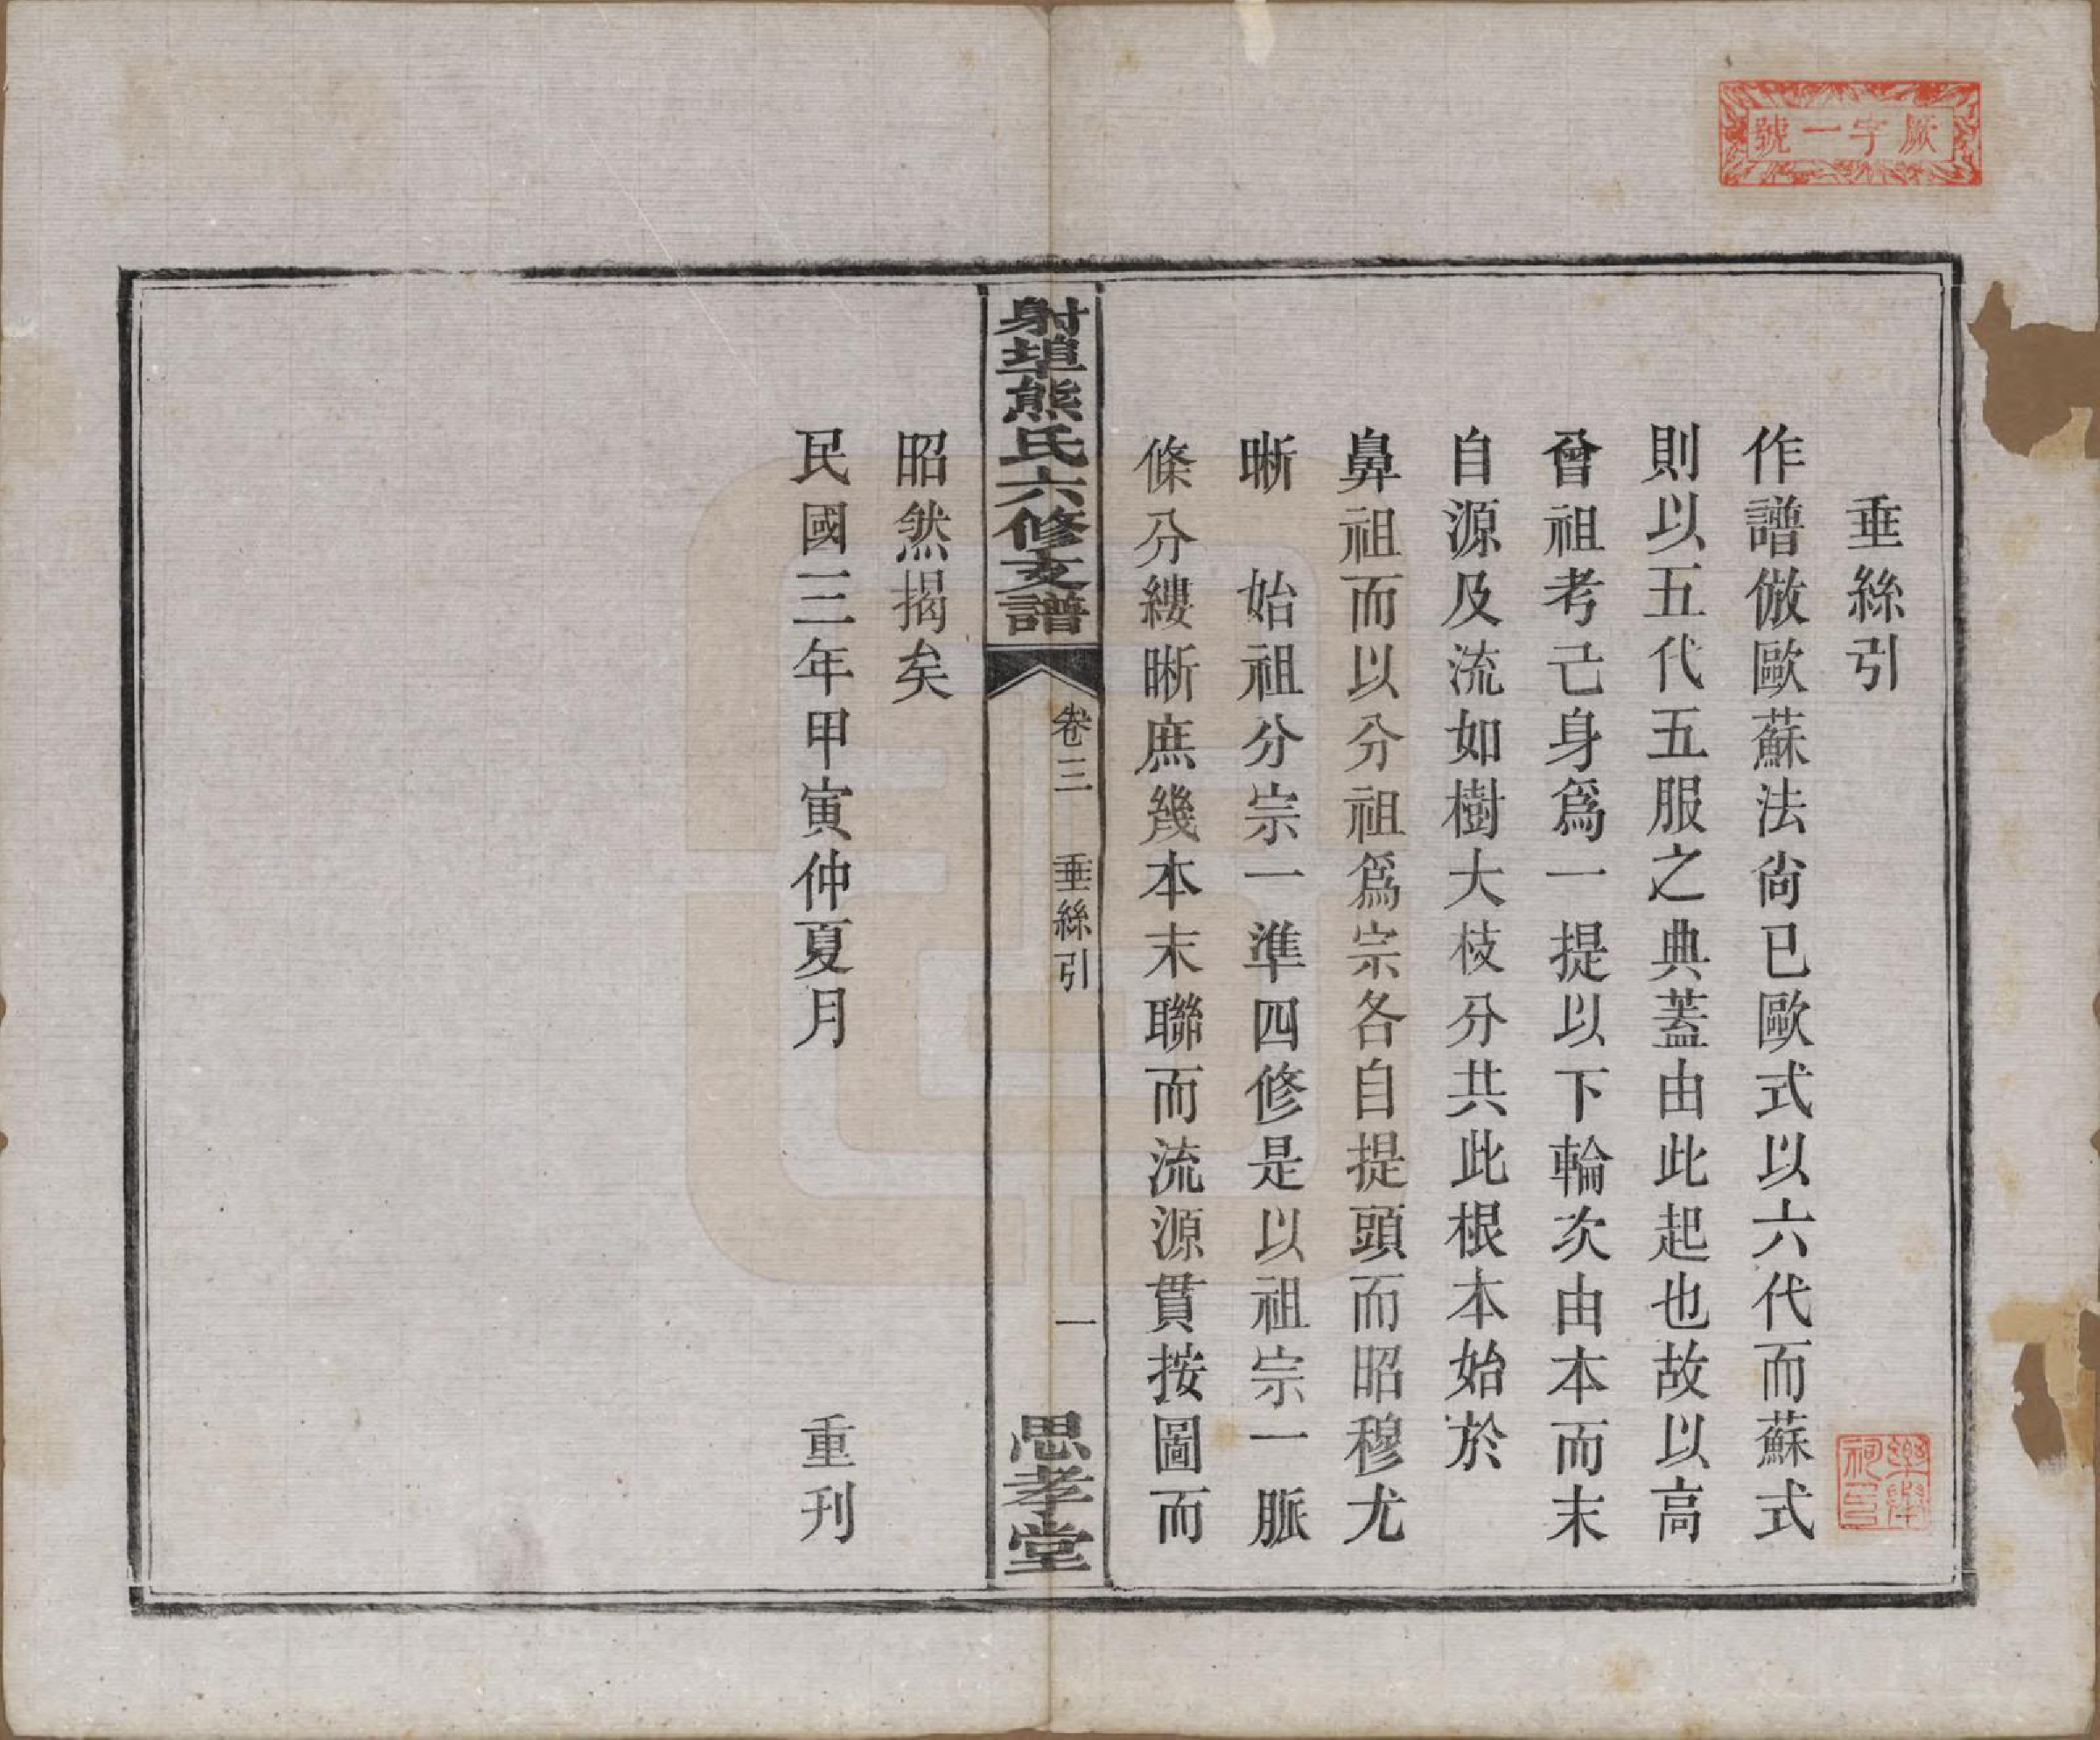 厥字一號
垂絲引
作譜倣歐蘇法尙已歐式以六代而蘇式
則以五代五服之典蓋由此起也故以高
曾祖考己身爲一提以下輪次由本而末
自源及流如樹大枝分共此根本始於
鼻祖而以分祖爲宗各自提頭而昭穆尤
晰　始祖分宗一準四修是以祖宗一脈
條分縷晰庶幾本末聯而流源貫按圖而
射埠熊氏六修支譜
卷三　垂絲引
一
思孝堂
昭然揭矣
民國三年甲寅仲夏月　重刊